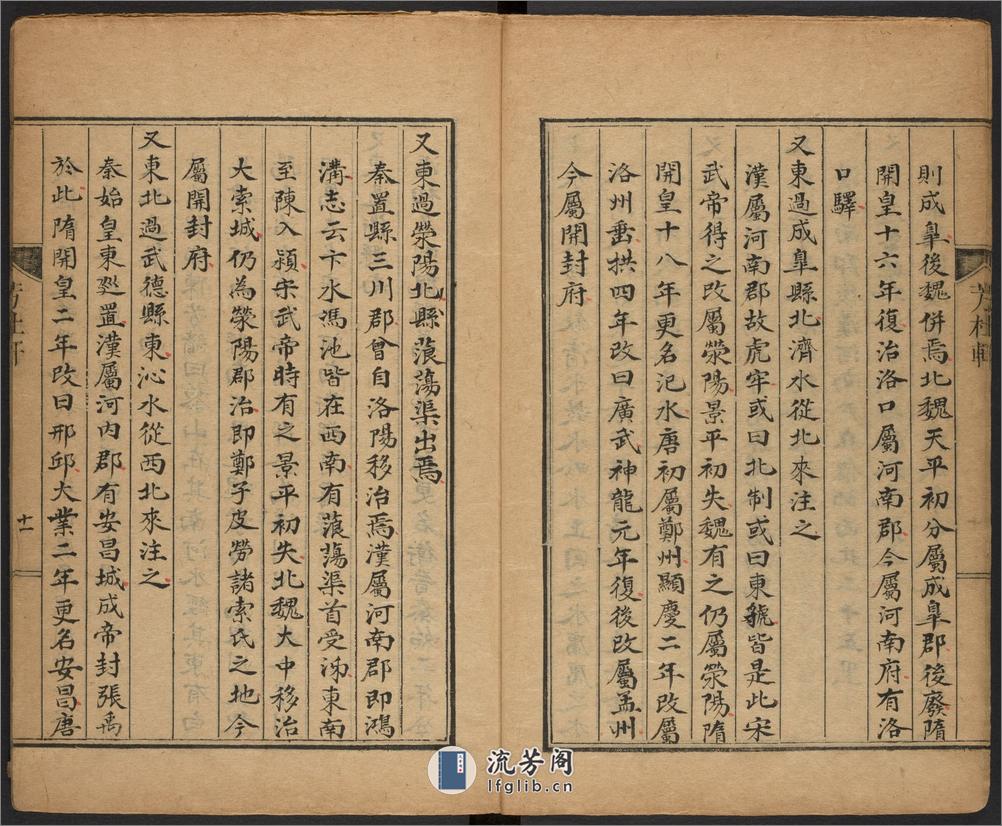 則成臯後魏併焉北魏天平初分屬成臯郡後廢隋
開皇十六年復治洛口屬河南郡今屬河南府有洛
口驛
又東過成臯縣北濟水從北來注之
漢屬河南郡故虎牢或曰北制或曰東虢皆是此宋
武帝得之改屬滎陽景平初失魏有之仍屬滎陽隋
開皇十八年更名汜水唐初屬鄭州顯慶二年改屬
洛州垂拱四年改曰廣武神龍元年復後改屬孟州
今屬開封府
又東過滎陽北縣蒗蕩渠出焉
秦置縣三川郡曾自洛陽移治焉漢屬河南郡即鴻
溝志云卞水馮池皆在西南有蒗蕩渠首受泲東南
至陳入潁宋武帝時有之景平初失北魏大中移治
大索城仍為滎陽郡治即鄭子皮勞諸索氏之地今
屬開封府
又東北過武德縣東沁水從西北來注之
秦始皇東廵置漢屬河內郡有安昌城成帝封張禹
於此隋開皇二年改曰邢邱大業二年更名安昌唐
十一
流芳阁
lfglib.cn